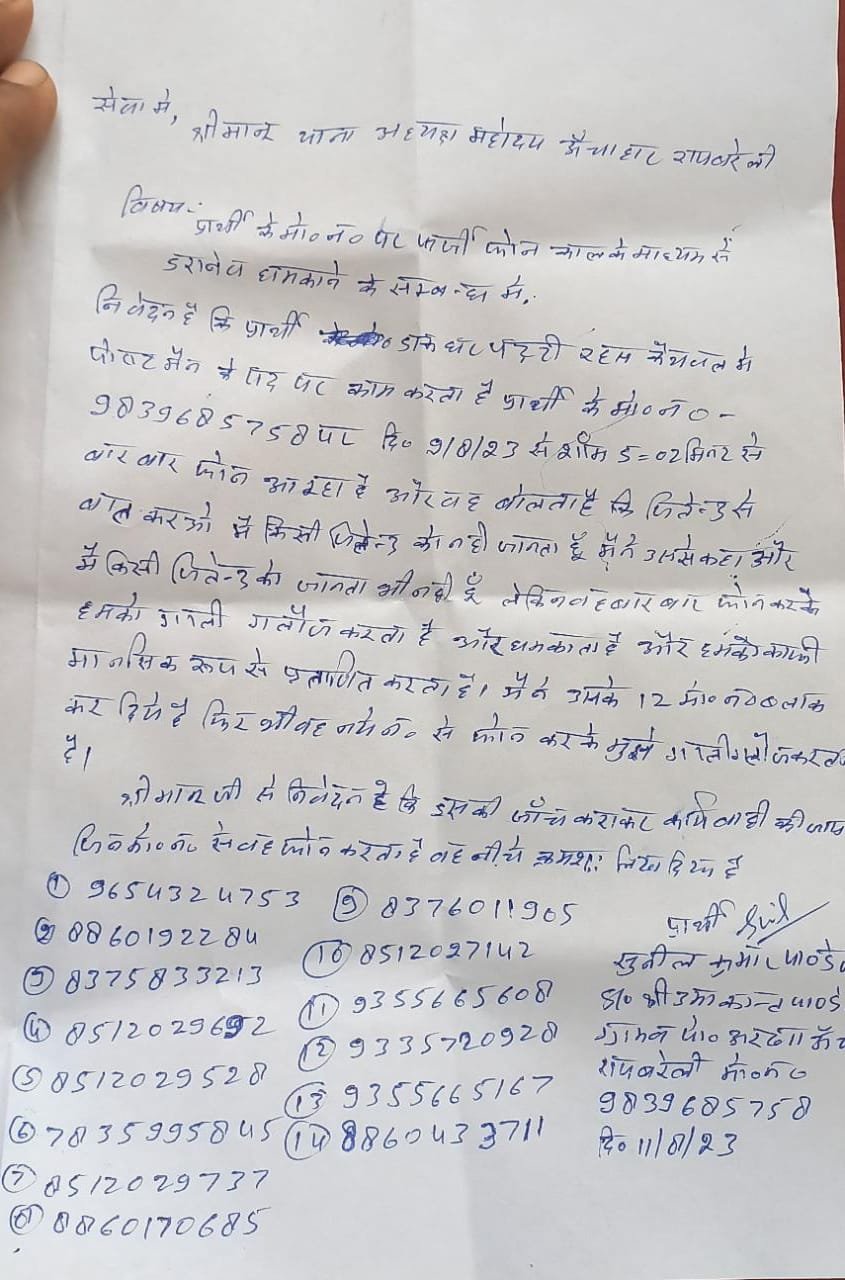 सेवा मे,
श्रीमान थाना अध्यक्ष महोदय ऊँचाहार रायबरेली
विषय:-
प्रार्थी के मो० नं० पर फर्जी फोन काल के माध्यम से
डराने व धमकाने के सम्बन्ध मे.
निवेदन है कि प्रार्थी डाक घर पट्टी रहस कैथवल मे
पोस्ट मैन के पद पर काम करता है प्रार्थी के मो० नं० -
9839685758 पर दि० 9/8/23 से शाम 5=02 मिनट से
बार बार फोन आ रहा है और वह बोलता है कि जितेन्द्र से
बात कराओ मै किसी जितेन्द्र को नही जानता हूँ मैने उससे कहा और
मै किसी जितेन्द्र को जानता भी नही हूँ लेकिन वह बार बार फोन करके
हमको गाली गलौज करता है और धमकाता है और हमको काफी
मानसिक रूप से प्रताणित करता है। मैने उसके 12 मो० नं० ब्लाक
कर दिये है फिर भी वह नये नं० से फोन करके मुझे गाली गलौज करता
है।
श्रीमान जी से निवेदन है कि इसकी जाँच कराकर कार्यवाही की जाय
जिन मो० नं० से वह फोन करता है वह नीचे क्रमशः लिख दिया है
① 9654324753 ⑨ 8376011905
② 8860192284 ⑩ 8512027142
③ 8375833213 ⑪ 9355665608
④ 8512029692 ⑫ 9335720928
⑤ 8512029528 ⑬ 9355665167
⑥ 7835995845 ⑭ 8860433711
⑦ 8512029737
⑧ 8860170685
प्रार्थी
सुनील कुमार पाण्डे
S/o श्री उमाकान्त पाण्डे
ग्राम व पो० अरखा
रायबरेली मो० नं०
9839685758
दि० 11/8/23